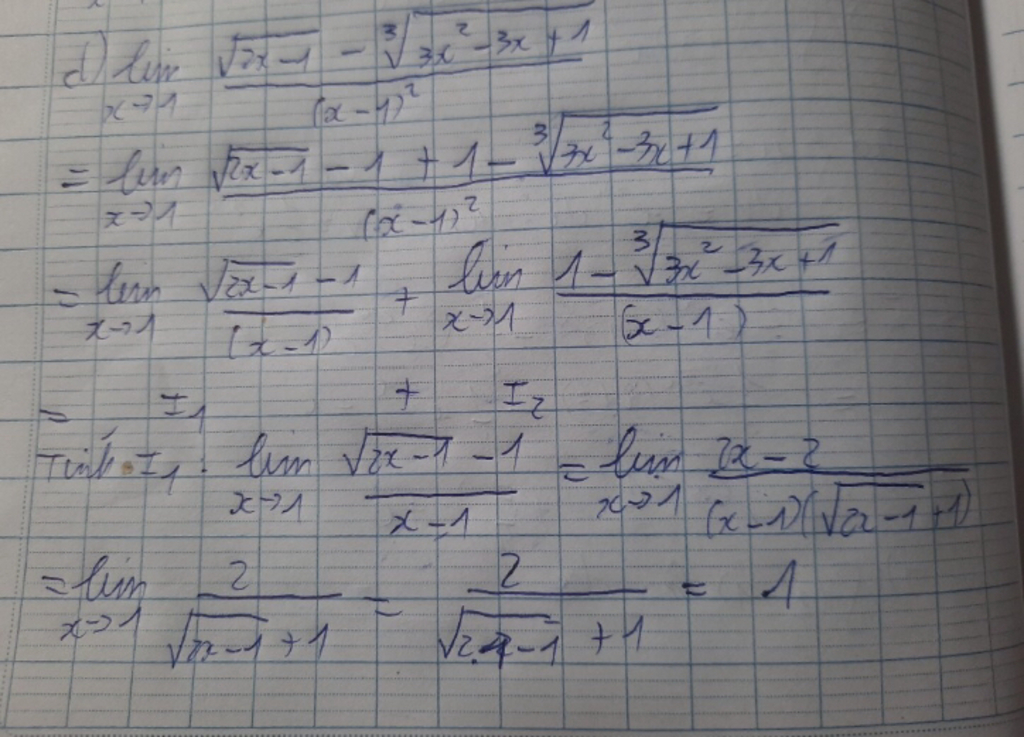 d) lim x→1 (√(2x-1) - ∛(3x² - 3x + 1)) / (x-1)²
= lim x→1 (√(2x-1) - 1 + 1 - ∛(3x² - 3x + 1)) / (x-1)²
= lim x→1 (√(2x-1) - 1) / (x-1) + lim x→1 (1 - ∛(3x² - 3x + 1)) / (x-1)
= I₁ + I₂
Tính I₁: lim x→1 (√(2x-1) - 1) / (x-1) = lim x→1 (2x-2) / ((x-1)(√(2x-1) + 1))
= lim x→1 2 / (√(2x-1) + 1) = 2 / (√(2.1-1) + 1) = 1